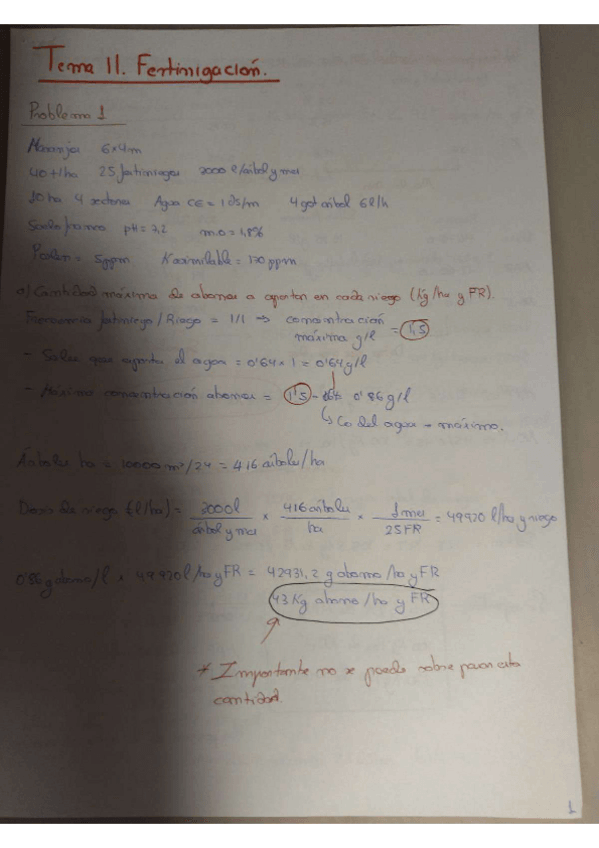 Tema 11. Fertirrigación.
Problema 1
Naranjos 6x4m
40 t/ha 25 fertirriegos 3000 l/árbol y mes
10 ha 4 sectores Agua CE = 1 dS/m 4 got árbol 6 l/h
Suelo franco pH = 7,2 m.o = 1,8%
Polsen = 5 ppm K asimilable = 170 ppm
a) Cantidad máxima de abonos a aportar en cada riego (Kg/ha y FR).
Frecuencia fertirriego / Riego = 1/1 → concentración
máxima g/l = 1,5
- Sales que aporta el agua = 0'64 x 1 = 0'64 g/l
- Máxima concentración abonos = 1'5 - 0'64 0'86 g/l
↳ Co del agua - máximo.
Árboles ha = 10000 m²/24 = 416 árboles/ha
Dosis de riego (l/ha) = 3000 l / árbol y mes x 416 árboles / ha x 1 mes / 25 FR = 49920 l/ha y riego
0'86 g abono/l x 49920 l/ha y FR = 42931,2 g abono/ha y FR
43 Kg abono/ha y FR
* Importante no se puede sobre pasar esta
cantidad.
1